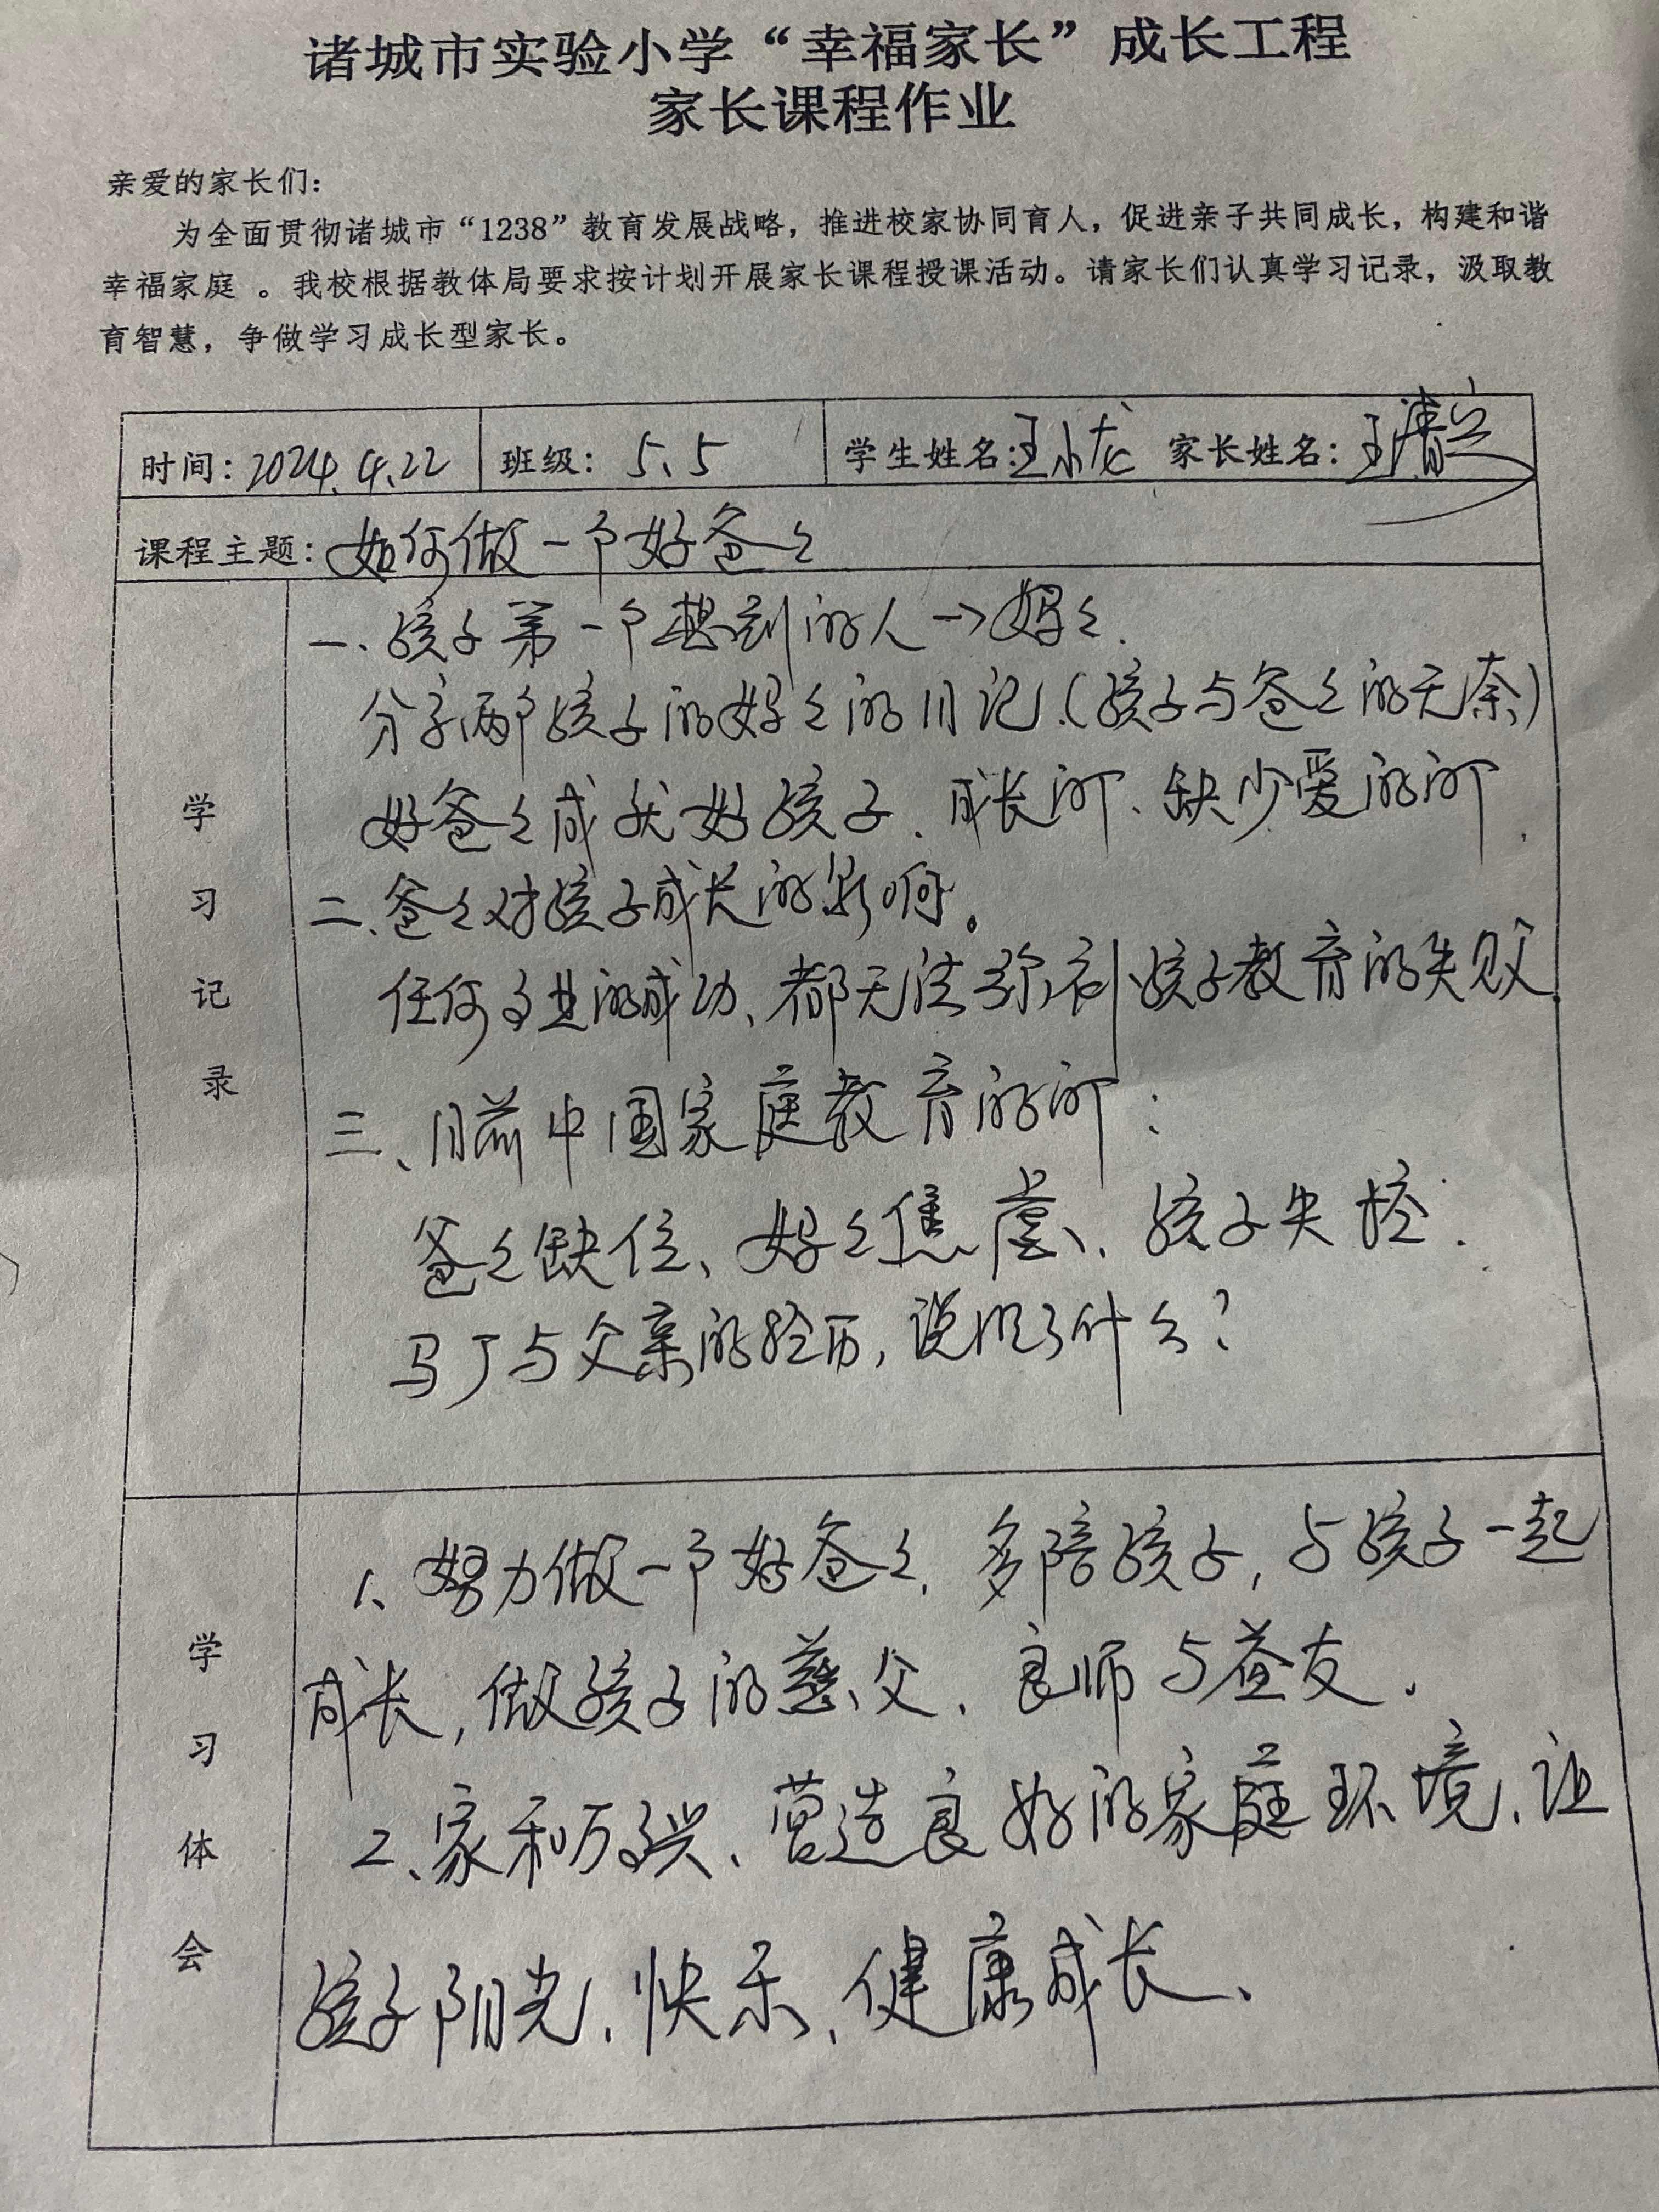 诸城市实验小学“幸福家长”成长工程
家长课程作业
亲爱的家长们：
为全面贯彻诸城市“1238”教育发展战略，推进校家协同育人，促进亲子共同成长，构建和谐
幸福家庭 。我校根据教体局要求按计划开展家长课程授课活动。请家长们认真学习记录，汲取教
育智慧，争做学习成长型家长。
时间：2024.4.22 班级：5.5 学生姓名：王小龙 家长姓名：王清
课程主题：如何做一个好爸々
学习记录
一、孩子第一个想到的人→妈々.
分享两个孩子的妈々的日记.(孩子与爸々的无奈)
好爸々成就好孩子、成长所、缺少爱的所.
二、爸々对孩子成长的影响。
任何事业的成功、都无法弥补孩子教育的失败.
三、目前中国家庭教育的所：
爸々缺位、妈々焦虑、孩子失控.
马丁与父亲的经历,说明了什么？
学习体会
1、努力做一个好爸々,多陪孩子,与孩子一起
成长,做孩子的慈父、良师与益友.
2、家和万事兴、营造良好的家庭环境、让
孩子阳光、快乐、健康成长、